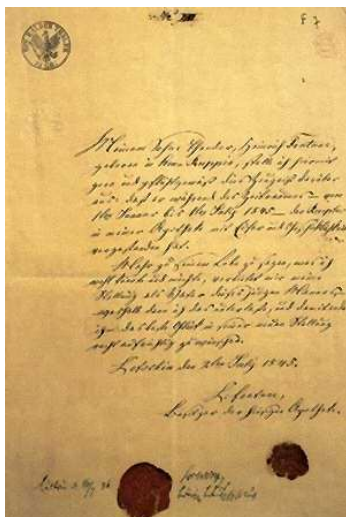 Meinem Sohne Theodor, Heinrich Fontane,
geboren in Neu Ruppin, stelle ich hiermit
gern und pflichtgemäß dies Zeugniß darüber
aus: daß er während des Zeitraumes – vom
1ten Januar bis 1ten July 1845 – der Receptur
in meiner Apotheke mit Eifer und
vorgestanden hat.
Mehr zu seinem Lobe zu sagen, was ich
wohl könnte und möchte, verbietet mir meine
Stellung als Vater dieses jungen Mannes,
weshalb denn ich das unterlasse, und damit
das beste Glück in seiner neuen Stellung
recht aufrichtig zu wünschen.
Letschin den 2ten July 1845.
L. Fontane,
Besitzer der hiesigen Apotheke.